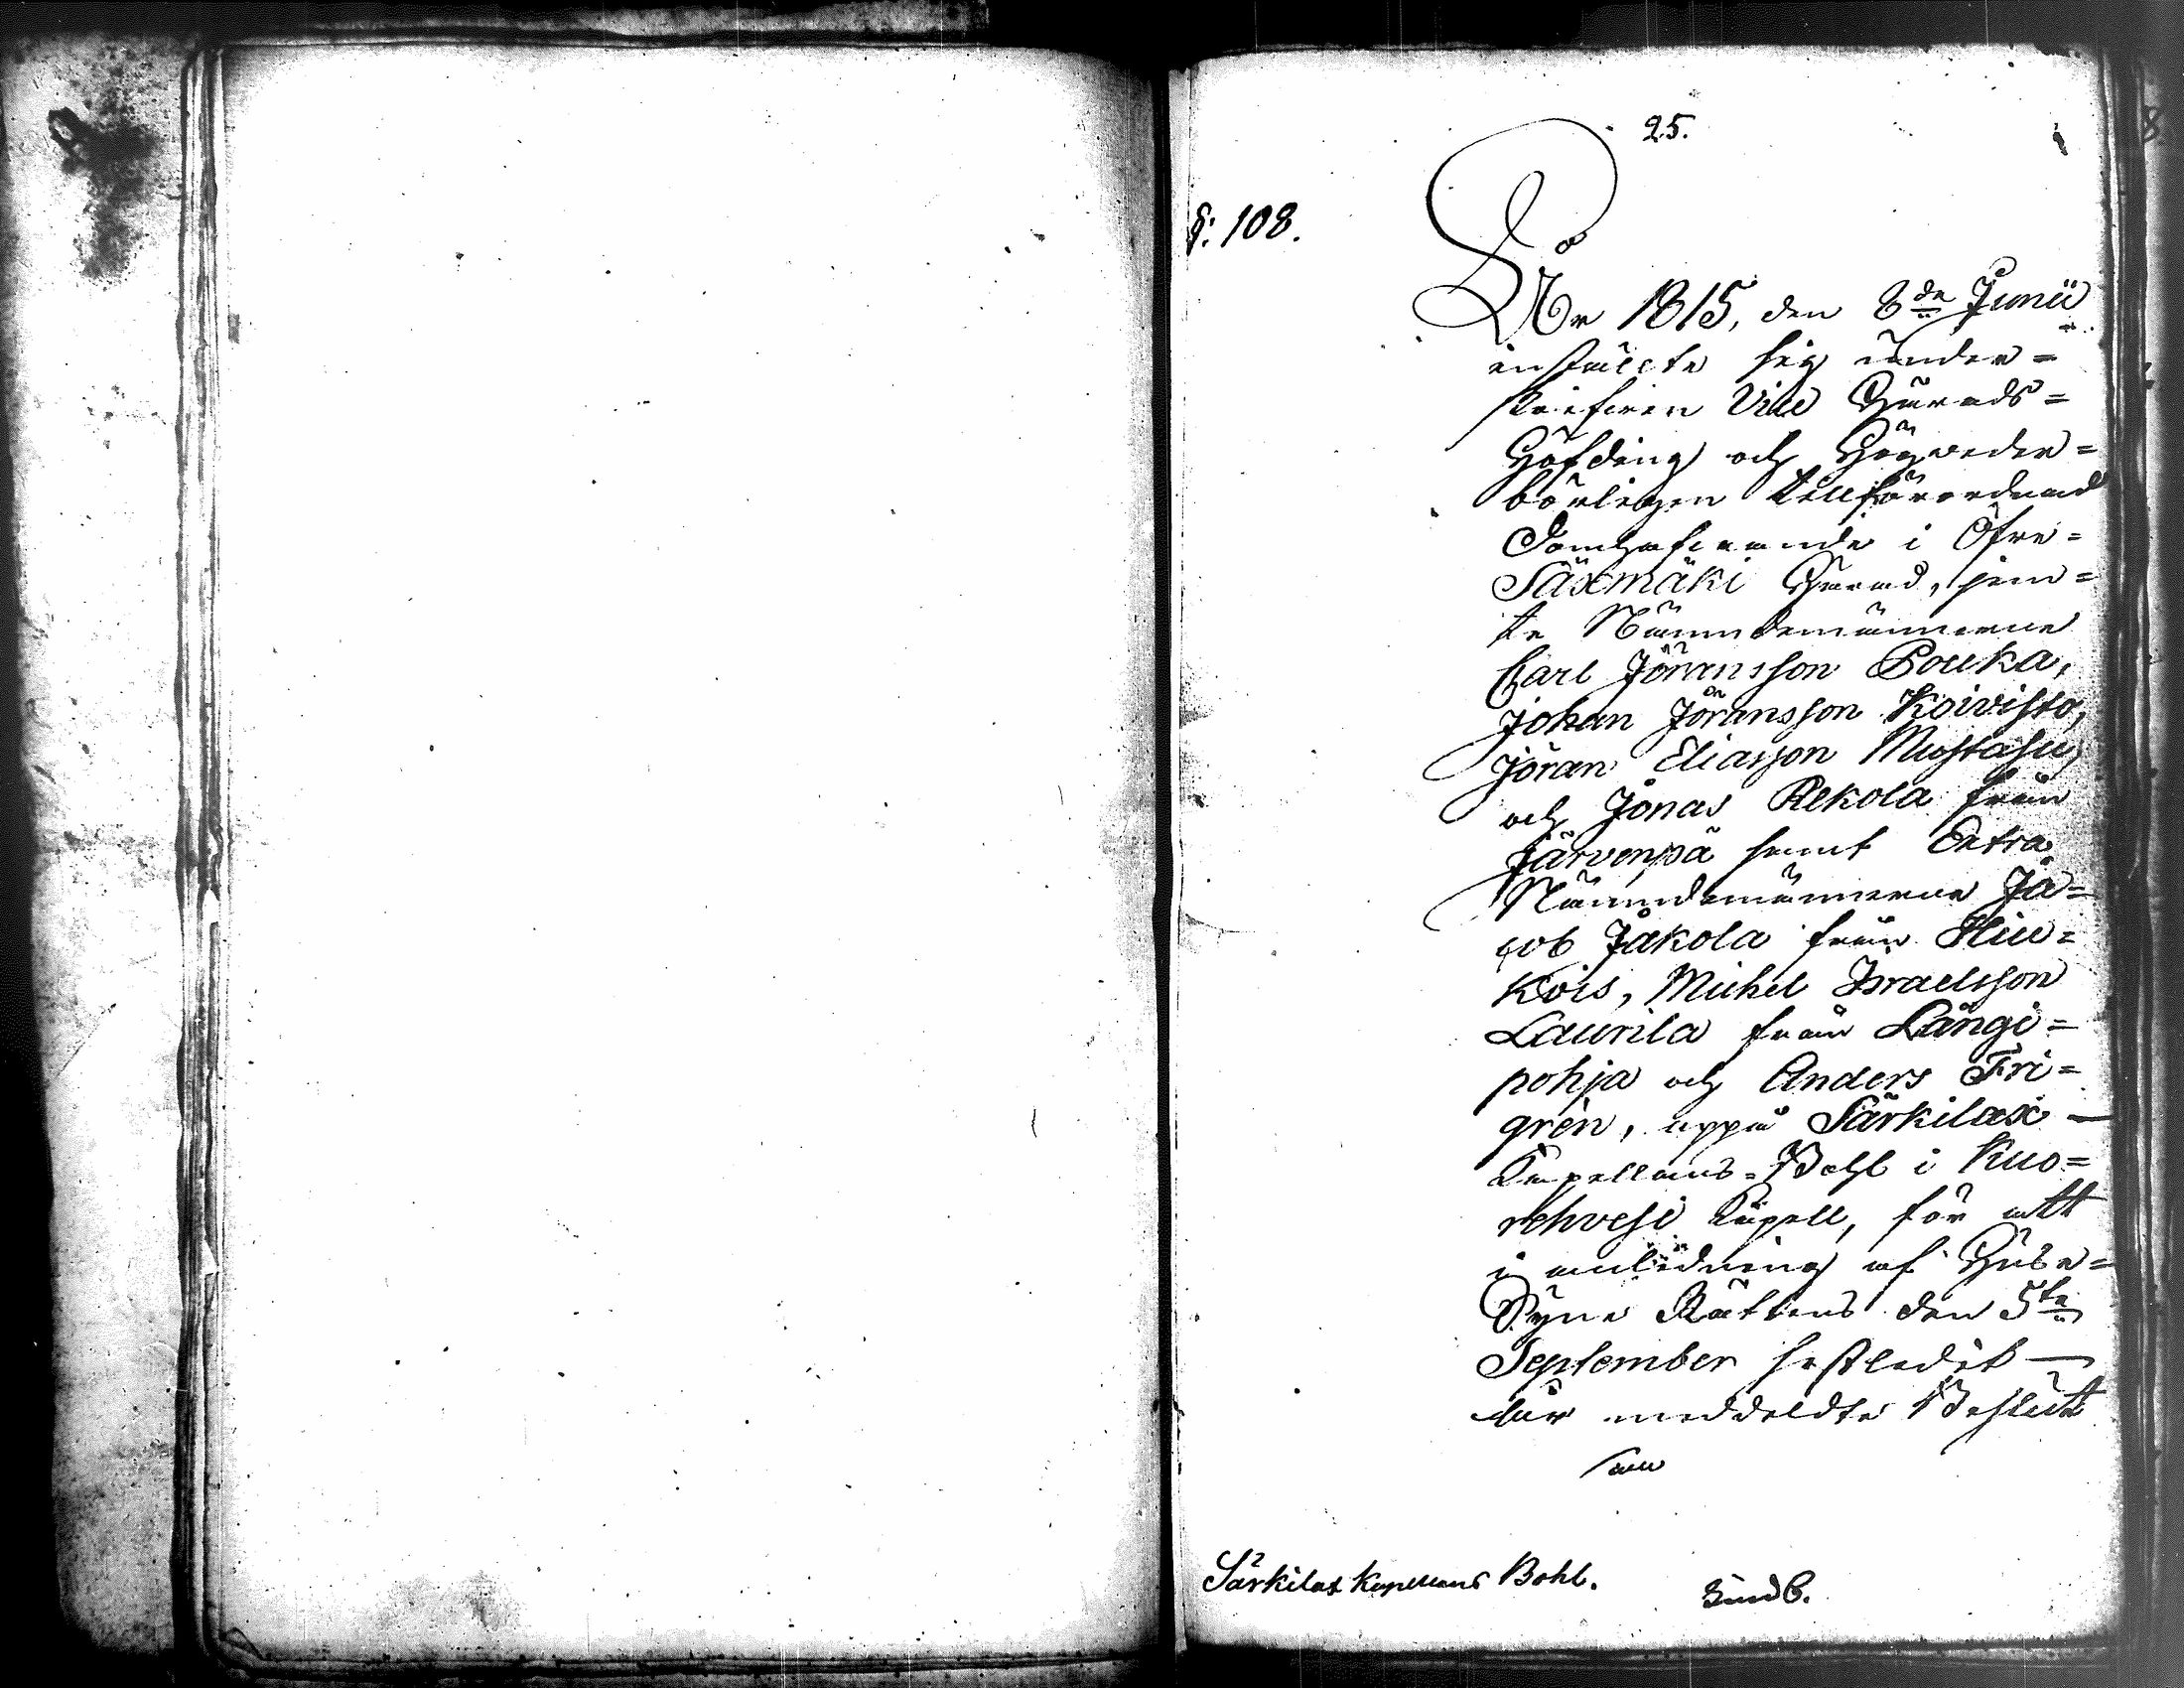 25.
§: 108.
År 1815, den 8de Junii
instälte sig under=
skrifven Vice Härads=
Höfding och Högveder=
börligen tillförordnad
Domhafvande i Öfre=
Säxmäki Härad, jem=
te Nämndemännerne
Carl Jöransson Pouka,
Johan Jöransson Koivisto,
Jöran Eliasson Mustasu,
och Jonas Rekola från
Järvenpä samt Extra
Nämndemännerne Ja=
cob Jakola från Hiu=
kois, Michel Israelsson
Laurila från Längi=
pohja och Anders Fri=
grèn, uppå Särkilax —
Capellans-Bohl i Kuo=
rehvesi Capell, för att
i anledning af Huse=
Syne Rättens den 5te
September sistledit —
år meddeldte Beslut
Särkilax Kapellans Bohl.